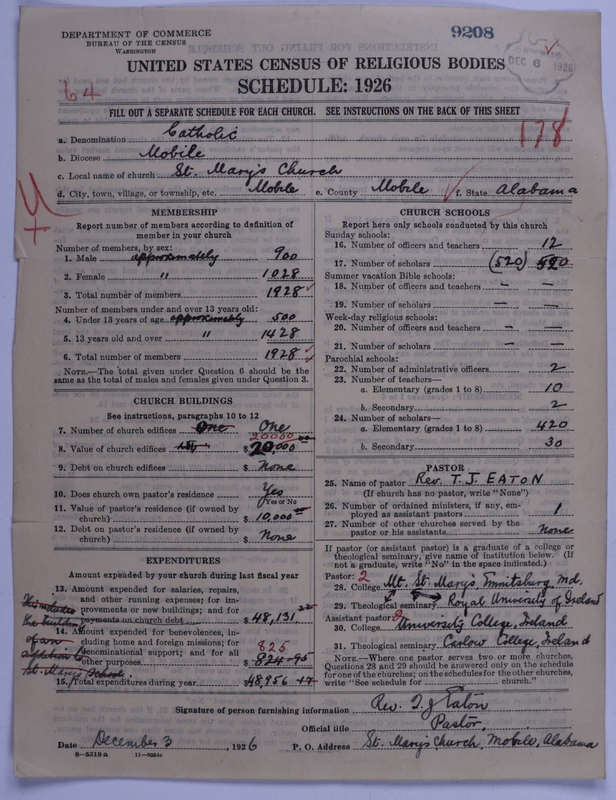 DEPARTMENT OF COMMERCE
BUREAU OF THE CENSUS
WASHINGTON
9208
DEC 6 1926
UNITED STATES CENSUS OF RELIGIOUS BODIES
SCHEDULE: 1926
64
FILL OUT A SEPARATE SCHEDULE FOR EACH CHURCH. SEE INSTRUCTIONS ON THE BACK OF THIS SHEET
178
a. Denomination Catholic
b. Diocese Mobile
c. Local name of church St. Mary's Church
d. City, town, village, or township, etc. Mobile e. County Mobile f. State Alabama
MEMBERSHIP
Report number of members according to definition of
member in your church
Number of members, by sex:
1. Male approximately 900
2. Female " 1028
3. Total number of members 1928
Number of members under and over 13 years old:
4. Under 13 years of age approximately 500
5. 13 years old and over " 1428
6. Total number of members 1928
NOTE.—The total given under Question 6 should be the
same as the total of males and females given under Question 3.
CHURCH BUILDINGS
See instructions, paragraphs 10 to 12
7. Number of church edifices One One
20000
8. Value of church edifices $ 20,000
9. Debt on church edifices $ None
10. Does church own pastor's residence Yes
(Yes or No)
11. Value of pastor's residence (if owned by
church) $ 10,000
12. Debt on pastor's residence (if owned by
church) $ None
EXPENDITURES
Amount expended by your church during last fiscal year
13. Amount expended for salaries, repairs,
and other running expenses; for im-
provements or new buildings; and for
payments on church debt $ 48,131
This includes
the building
of an
addition to
St. Mary's School.
14. Amount expended for benevolences, in-
cluding home and foreign missions; for
denominational support; and for all
other purposes $ 824.95
825
15. Total expenditures during year $ 48,956
CHURCH SCHOOLS
Report here only schools conducted by this church
Sunday schools:
16. Number of officers and teachers 12
17. Number of scholars (520) 520
Summer vacation Bible schools:
18. Number of officers and teachers — —
19. Number of scholars — —
Week-day religious schools:
20. Number of officers and teachers — —
21. Number of scholars — —
Parochial schools:
22. Number of administrative officers 2
23. Number of teachers—
a. Elementary (grades 1 to 8) 10
b. Secondary 2
24. Number of scholars—
a. Elementary (grades 1 to 8) 420
b. Secondary 30
PASTOR
25. Name of pastor Rev. T. J. EATON
(If church has no pastor, write "None")
26. Number of ordained ministers, if any, em-
ployed as assistant pastors 1
27. Number of other churches served by the
pastor or his assistants None
If pastor (or assistant pastor) is a graduate of a college or
theological seminary, give name of institution below. (If
not a graduate, write "No" in the space indicated.)
Pastor: 2
28. College Mt. St. Marys, Emmitsburg, Md.
29. Theological seminary Royal University of Ireland
Assistant pastor:
30. College University College, Ireland
31. Theological seminary Carlow College, Ireland
NOTE.—Where one pastor serves two or more churches,
Questions 28 and 29 should be answered only on the schedule
for one of the churches; on the schedules for the other churches,
write "See schedule for church."
Signature of person furnishing information Rev. T. J. Eaton
Official title Pastor,
Date December 3, 1926 P. O. Address St. Mary's Church, Mobile, Alabama
8—5518a 11—9064